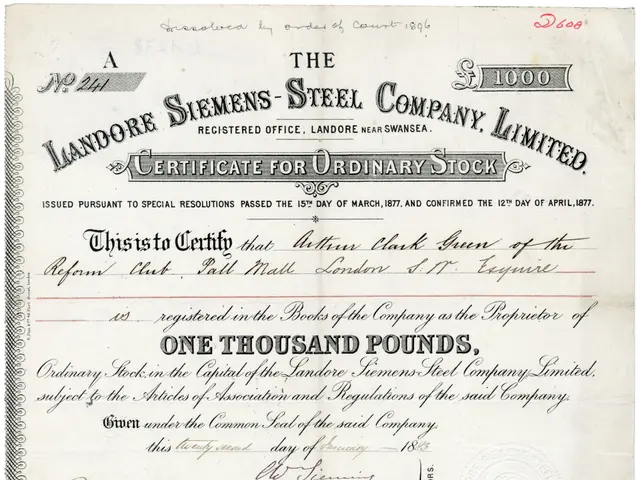 Dissolved by order of Court 1896
D608
A
THE
No. 241
£ 1000
LANDORE SIEMENS-STEEL COMPANY, LIMITED.
REGISTERED OFFICE, LANDORE NEAR SWANSEA.
CERTIFICATE FOR ORDINARY STOCK
ISSUED PURSUANT TO SPECIAL RESOLUTIONS PASSED THE 15TH DAY OF MARCH, 1877. AND CONFIRMED THE 12TH DAY OF APRIL, 1877.
This is to Certify that Arthur Clark Green of the
Reform Club, Pall Mall London S.W. Esquire
is registered in the Books of the Company as the Proprietor of
ONE THOUSAND POUNDS,
Ordinary Stock in the Capital of the Landore Siemens-Steel Company, Limited.
subject to the Articles of Association and Regulations of the said Company.
Given under the Common Seal of the said Company.
this twenty second day of January 18
Siemens